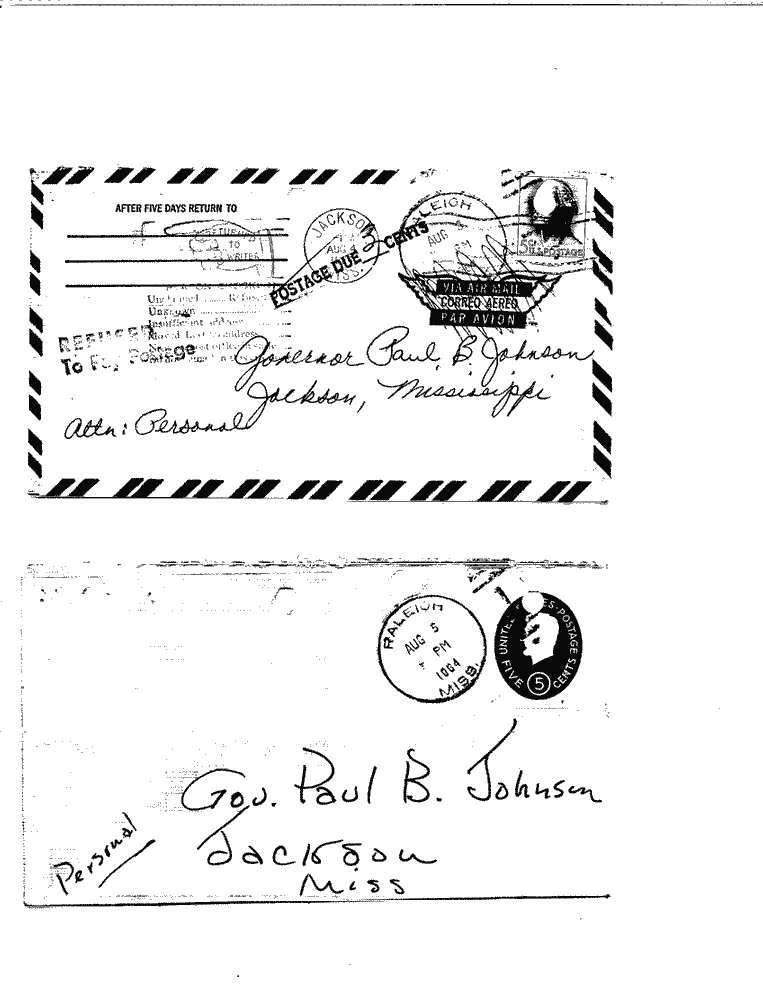 AFTER FIVE DAYS RETURN TO
RETURN
TO
WRITER
JACKSON
AUG 4
MISS.
RALEIGH
AUG
PM
5¢
U.S. POSTAGE
POSTAGE DUE CENTS
VIA AIR MAIL
CORREO AEREO
PAR AVION
Unclaimed Refused
Unknown
Insufficient address
Moved, Left no address
REFUSED
To Pay Postage
Governor Paul B Johnson
Jackson, Mississippi
Attn: Personal
RALEIGH
AUG 5
PM
1964
MISS.
UNITED STATES POSTAGE
FIVE 5 CENTS
Gov. Paul B. Johnson
Jackson
Miss
Personal